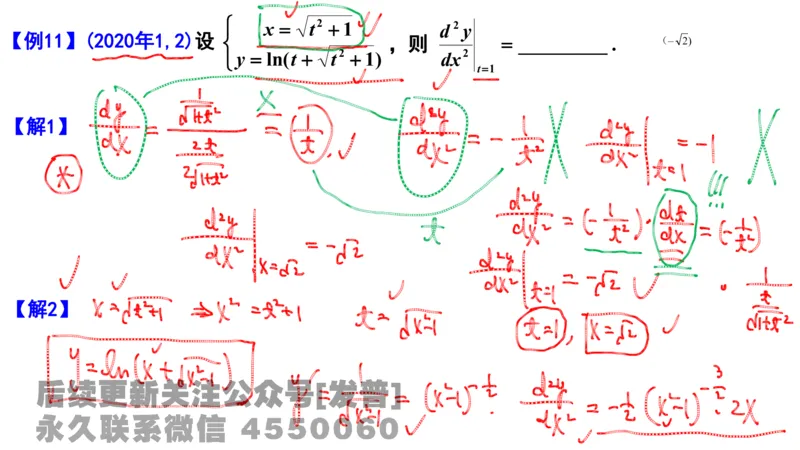 【例11】(2020年1,2)设 { x = √(t²+1) , y = ln(t+√(t²+1)) , 则 d²y/dx² |t=1 = ________ . (−√2)
【解1】 dy/dx = (1/√(1+t²)) / (2t/(2√(1+t²))) = 1/t, √ d²y/dx² = −1/t² X d²y/dx² |t=1 = −1 X
x
* t !!!
d²y/dx² = (−1/t²)·dt/dx = (−1/t²)
· 1/(t/√(1+t²))
d²y/dx² |x=√2 = −√2
d²y/dx² |t=1 = −√2 √
【解2】 x=√(t²+1) ⇒ x²=t²+1 t=√(x²−1) t=1, x=√2 √
y=ln(x+√(x²−1))
y' = 1/√(x²−1) = (x²−1)^(−1/2). d²y/dx² = −1/2 (x²−1)^(−3/2)·2x
后续更新关注公众号[发普]
永久联系微信 4550060